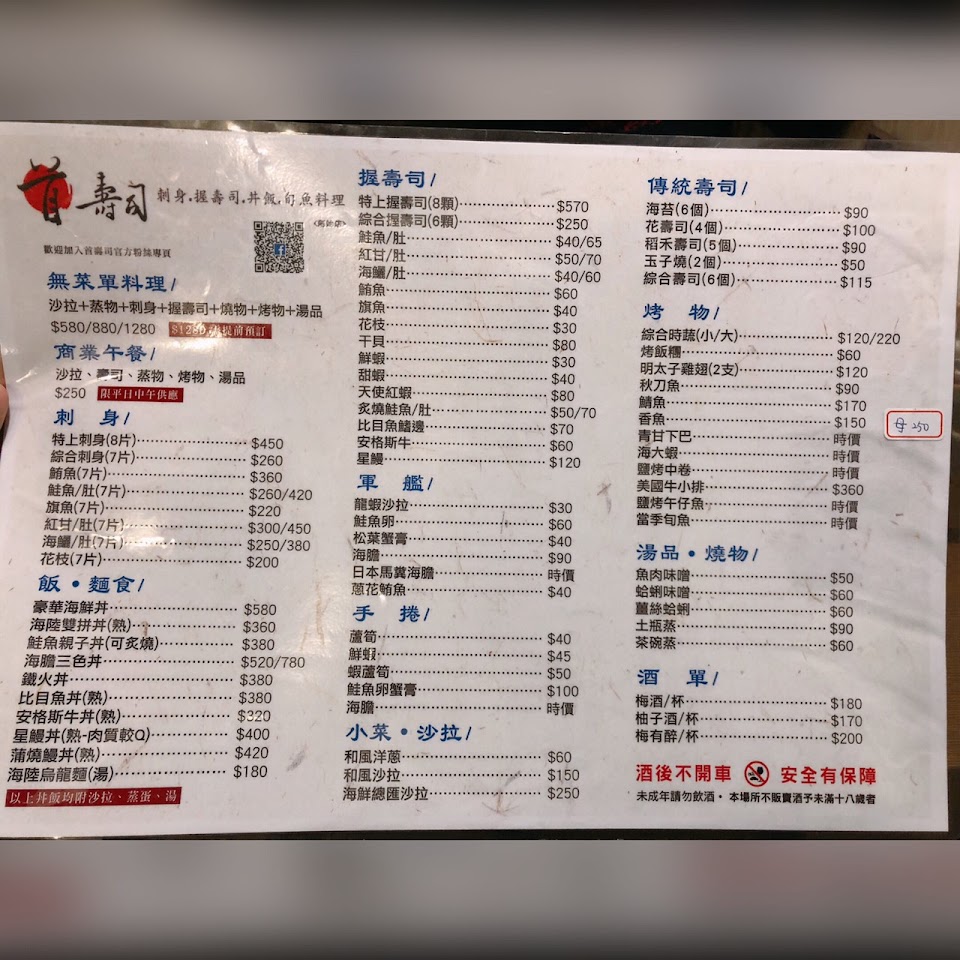 首壽司
刺身.握壽司.丼飯.旬魚料理
歡迎加入首壽司官方粉絲專頁
無菜單料理/
沙拉+蒸物+刺身+握壽司+燒物+烤物+湯品
$580/880/1280 $1280請提前預訂
商業午餐/
沙拉、壽司、蒸物、烤物、湯品
$250 限平日中午供應
刺 身/
特上刺身(8片) $450
綜合刺身(7片) $260
鮪魚(7片) $360
鮭魚/肚(7片) $260/420
旗魚(7片) $220
紅甘/肚(7片) $300/450
海鱺/肚(7片) $250/380
花枝(7片) $200
飯・麵食/
豪華海鮮丼 $580
海陸雙拼丼(熟) $360
鮭魚親子丼(可炙燒) $380
海膽三色丼 $520/780
鐵火丼 $380
比目魚丼(熟) $380
安格斯牛丼(熟) $320
星鰻丼(熟-肉質較Q) $400
蒲燒鰻丼(熟) $420
海陸烏龍麵(湯) $180
以上丼飯均附沙拉、蒸蛋、湯
握壽司/
特上握壽司(8顆) $570
綜合握壽司(6顆) $250
鮭魚/肚 $40/65
紅甘/肚 $50/70
海鱺/肚 $40/60
鮪魚 $60
旗魚 $40
花枝 $30
干貝 $80
鮮蝦 $30
甜蝦 $40
天使紅蝦 $80
炙燒鮭魚/肚 $50/70
比目魚鰭邊 $70
安格斯牛 $60
星鰻 $120
軍 艦/
龍蝦沙拉 $30
鮭魚卵 $60
松葉蟹膏 $40
海膽 $90
日本馬糞海膽 時價
蔥花鮪魚 $40
手 捲/
蘆筍 $40
鮮蝦 $45
蝦蘆筍 $50
鮭魚卵蟹膏 $100
海膽 時價
小菜・沙拉/
和風洋蔥 $60
和風沙拉 $150
海鮮總匯沙拉 $250
傳統壽司/
海苔(6個) $90
花壽司(4個) $100
稻禾壽司(5個) $90
玉子燒(2個) $50
綜合壽司(6個) $115
烤 物/
綜合時蔬(小/大) $120/220
烤飯糰 $60
明太子雞翅(2支) $120
秋刀魚 $90
鯖魚 $170
香魚 $150
母250
青甘下巴 時價
海大蝦 時價
鹽烤中卷 時價
美國牛小排 $360
鹽烤午仔魚 時價
當季旬魚 時價
湯品・燒物/
魚肉味噌 $50
蛤蜊味噌 $60
薑絲蛤蜊 $60
土瓶蒸 $90
茶碗蒸 $60
酒 單/
梅酒/杯 $180
柚子酒/杯 $170
梅有醉/杯 $200
酒後不開車 安全有保障
未成年請勿飲酒・本場所不販賣酒予未滿十八歲者